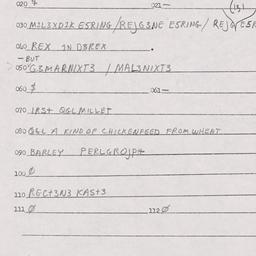 020 $ 021 — (13)
030 M2L3XD1K E5RING / REJG3NE E5RING /
040 REX IN D8REX .
— BUT
050 G3MARNIXT3 / MAL3NIXT3
060 $ 061 —
070 IRS+ QGL MILLET
080 Q6L A KIND OF CHICKENFEED FROM WHEAT
090 BARLEY PERLGROJP+
100 Ø
110 REC+3N3 KAS+3
111 Ø 112 Ø